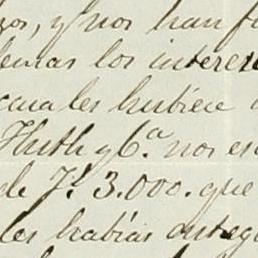 zos, y nos han fa
demas los interes
cuales hubiese
Huth y Cª. nos es
de 7: 3.000. que
les habias entreg